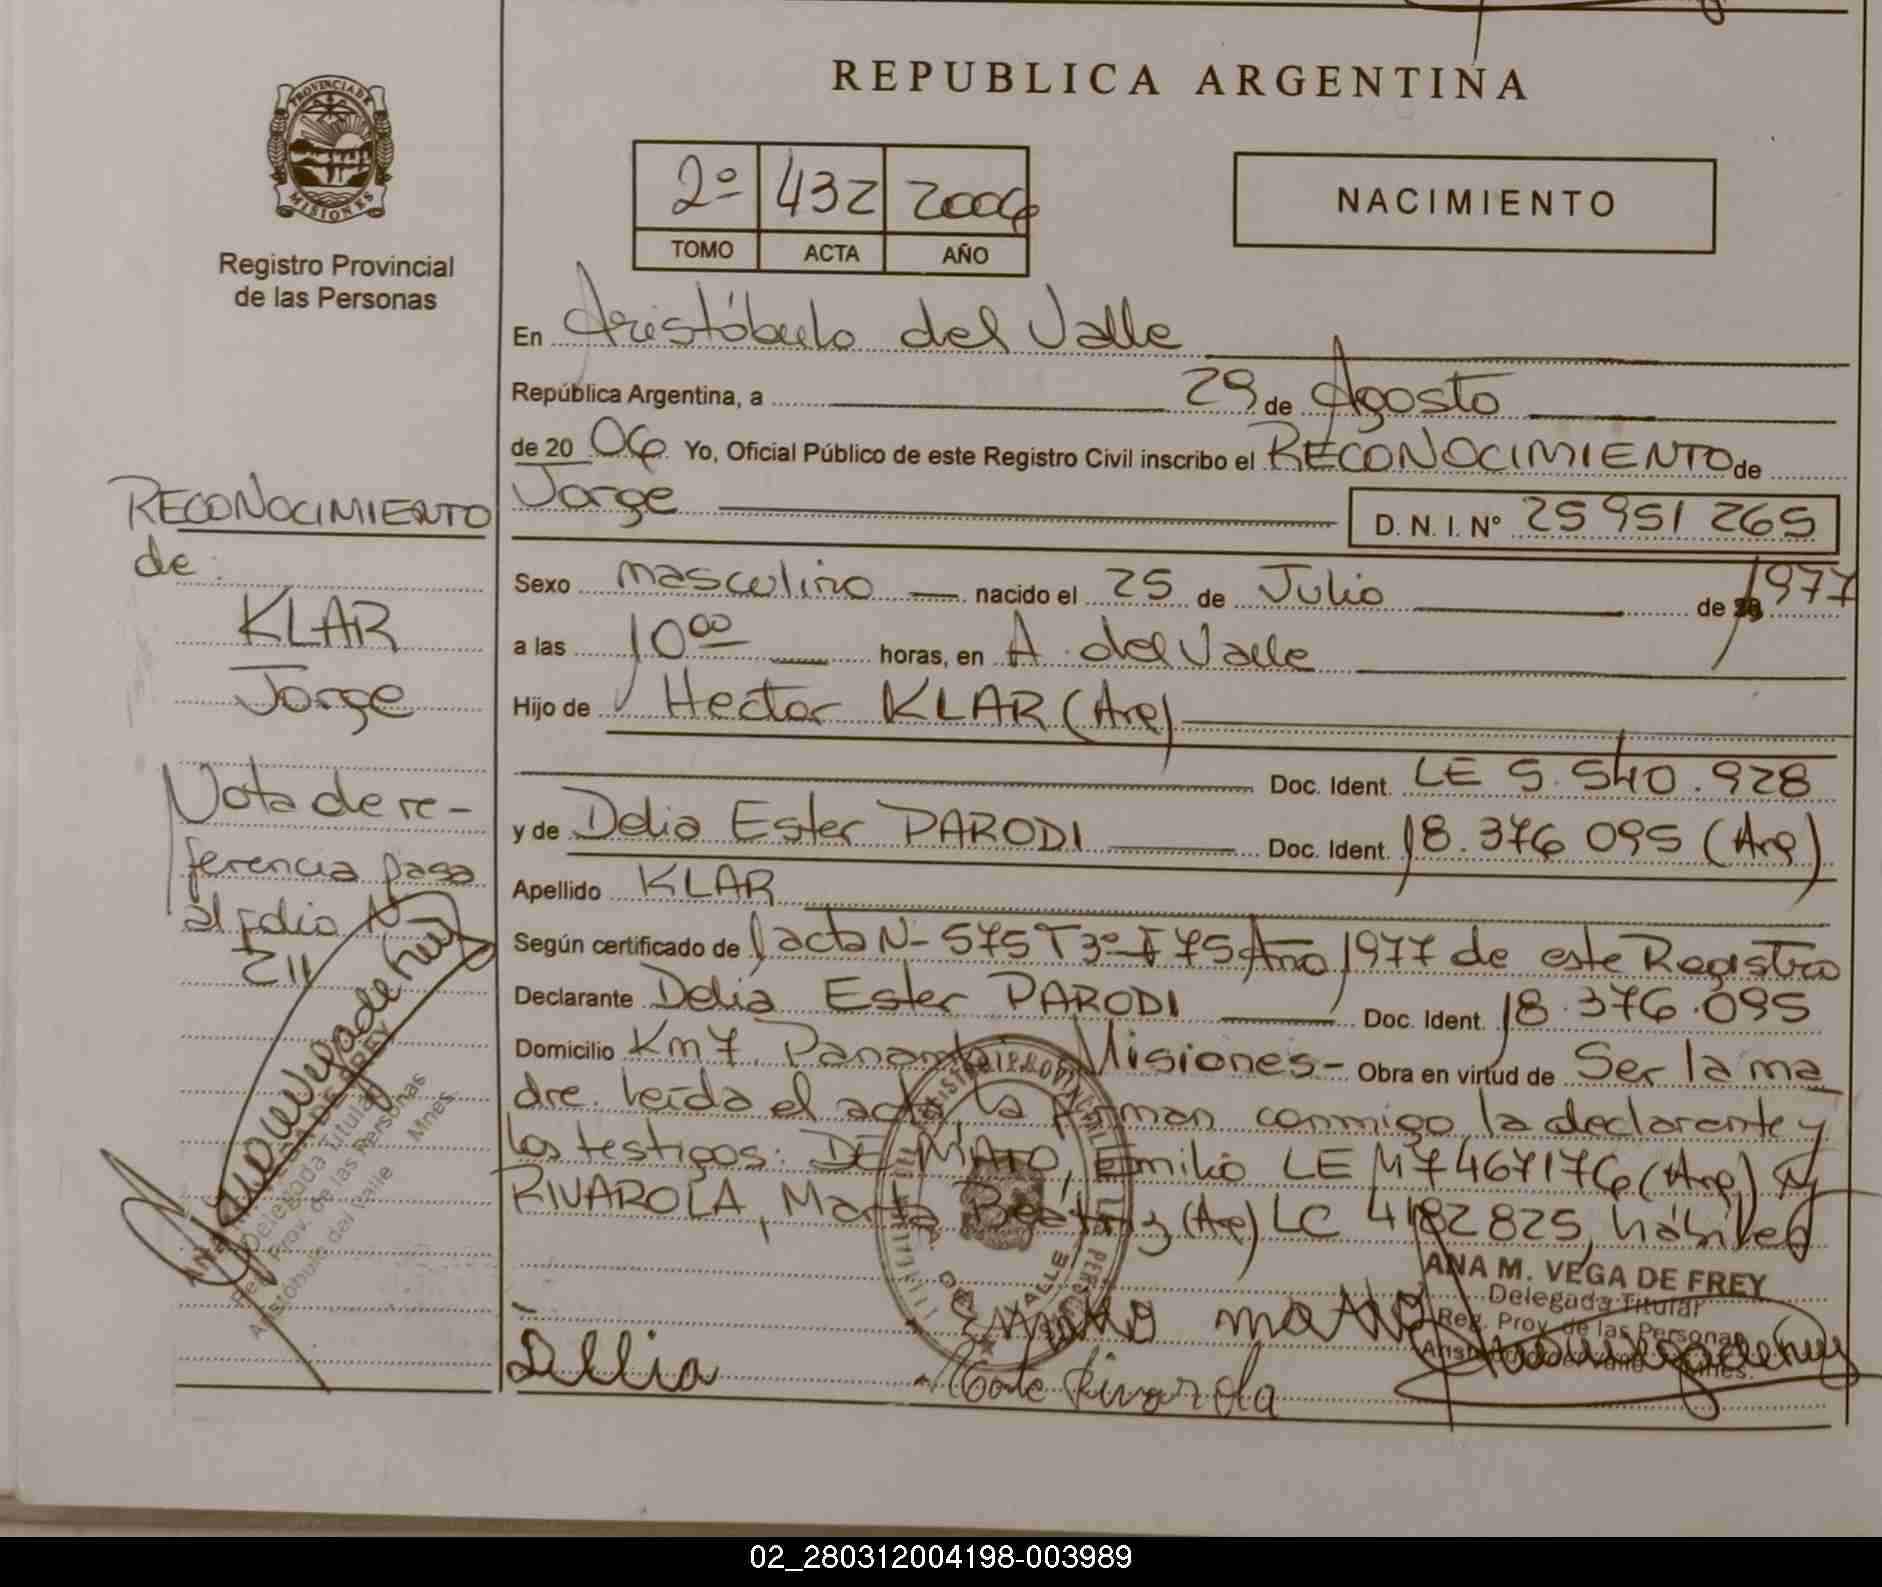 REPUBLICA ARGENTINA
PROVINCIA DE MISIONES
Registro Provincial
de las Personas
2º 432 2006
TOMO ACTA AÑO
NACIMIENTO
En Aristóbulo del Valle
República Argentina, a 29 de Agosto
de 20 06 Yo, Oficial Público de este Registro Civil inscribo el RECONOCIMIENTO de
Jorge D. N. I. Nº 25951265
Sexo masculino nacido el 25 de Julio de 1977
a las 10 00 horas, en A. del Valle
Hijo de Hector KLAR (Arg)
Doc. Ident. LE 5.540.928
y de Delia Ester PARODI Doc. Ident. 18.376 095 (Arg)
Apellido KLAR
Según certificado de acta N- 575 T3º F 75 Año 1977 de este Registro
Declarante Delia Ester PARODI Doc. Ident. 18.376.095
Domicilio Km 7. Panambi Misiones- Obra en virtud de Ser la ma
dre. Leída el acta la firman conmigo la declarante y
los testigos: DE MATO, Emilio LE M7467176 (Arg) y
RIVAROLA, Marta Beatriz (Arg) LC 4182825, hábiles
ANA M. VEGA DE FREY
Delegada Titular
Reg. Prov. de las Personas
Aristóbulo del Valle Mnes.
Dellia
Emilio mato
Rivarola
RECONOCIMIENTO
de
KLAR
Jorge
Nota de re-
ferencia pasa
al folio N-
211
Delegada Titular
Reg. Prov. de las Personas
Aristóbulo del Valle Mnes.
02_280312004198-003989